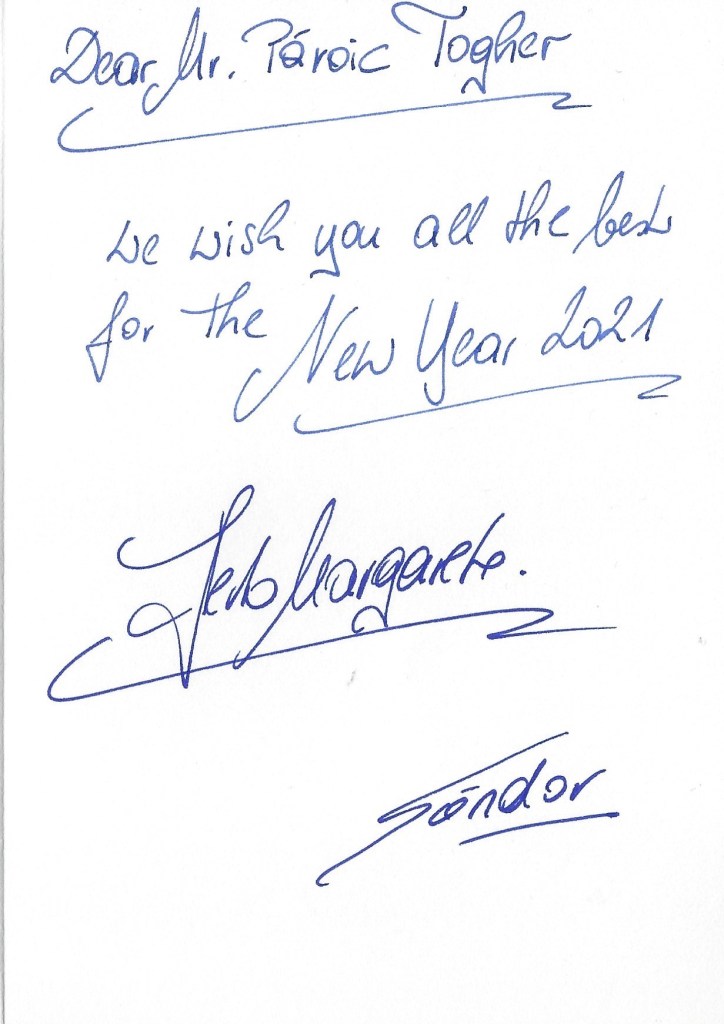 Dear Mr. Pároic Togher
we wish you all the best
for the New Year 2021
Margarete.
Sándor